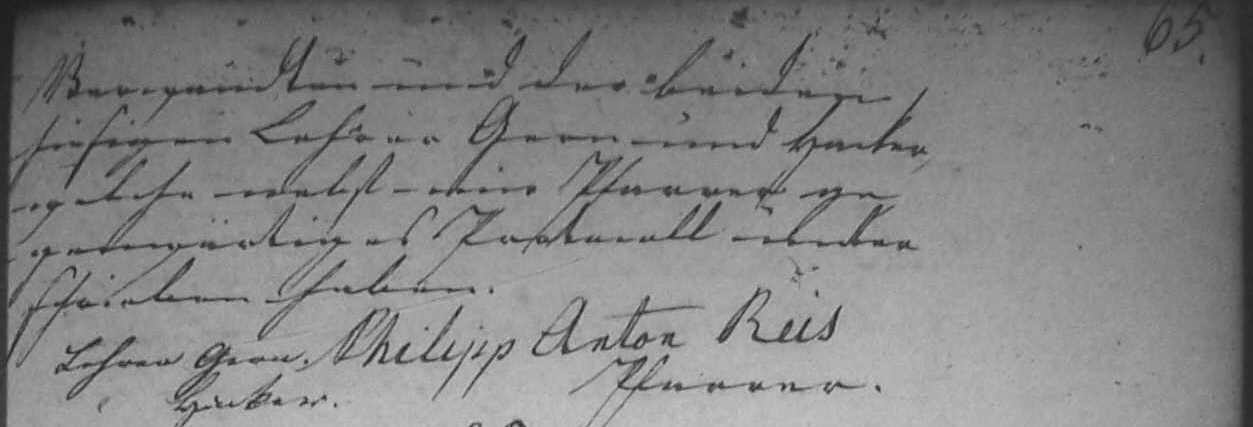 65.
Verwandten und der beiden
hiesigen Lehrer Gern und Hacker,
welche nebst mir Pfarrer ge
genwärtiges Protocoll unter
schrieben haben.
Lehrer Gern. Philipp Anton Reis
Hacker. Pfarrer.